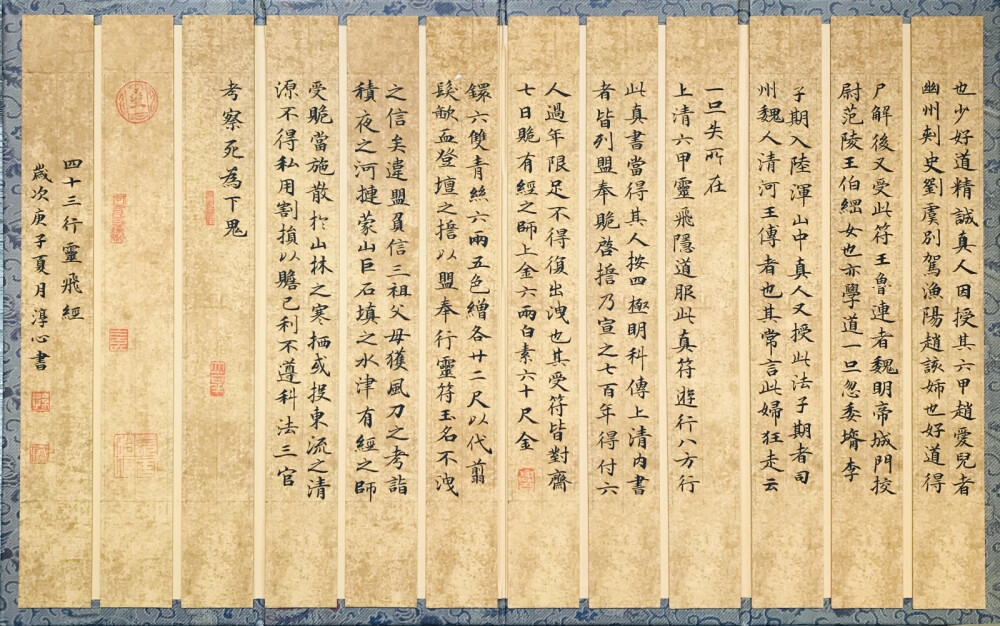 也少好道精誠真人因授其六甲趙愛兒者
幽州刺史劉虞別駕漁陽趙該姉也好道得
尸解後又受此符王魯連者魏明帝城門挍
尉范陵王伯綱女也亦學道一旦忽委壻李
子期入陸渾山中真人又授此法子期者司
州魏人清河王傳者也其常言此婦狂走云
一旦失所在
上清六甲靈飛隱道服此真符遊行八方行
此真書當得其人按四極明科傳上清內書
者皆列盟奉貺啓擔乃宣之七百年得付六
人過年限足不得復出洩也其受符皆對齋
七日貺有經之師上金六兩白素六十尺金
鐶六雙青絲六兩五色繒各廿二尺以代翦
髮歃血登壇之擔以盟奉行靈符玉名不洩
之信矣違盟負信三祖父母獲風刀之考詣
積夜之河摙蒙山巨石填之水津有經之師
受貺當施散於山林之寒栖或投東流之清
源不得私用割損以贍己利不遵科法三官
考察死為下鬼
四十三行靈飛經
歲次庚子夏月 淳心書